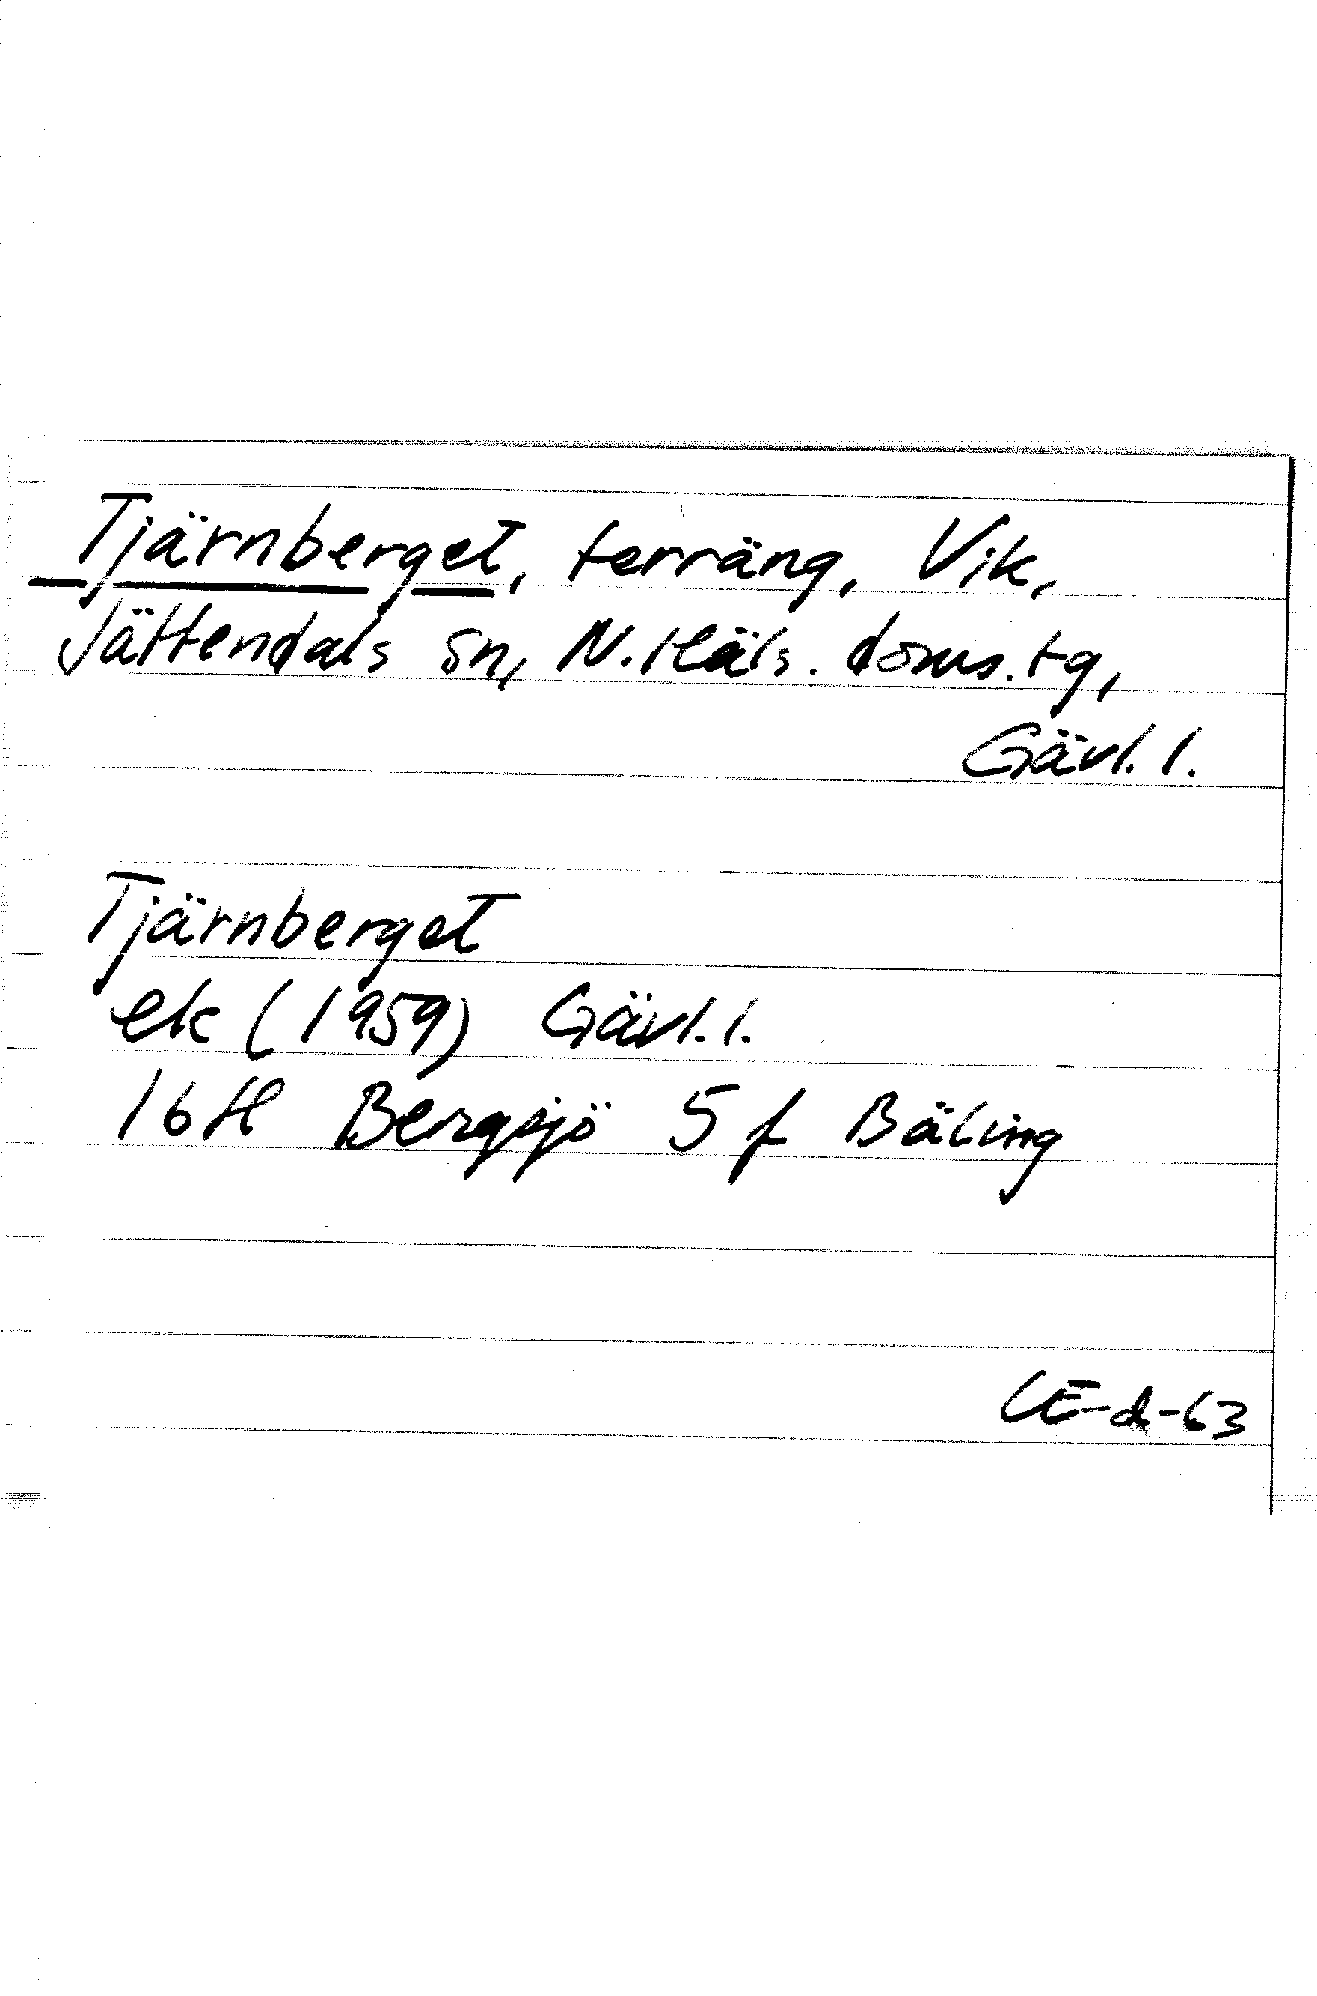 Tjärnberget, terräng, Vik,
Jättendals sn, N. Häls. doms. tg,
Gävl. l.
Tjärnberget
ek (1959) Gävl. l.
16H Bergsjö 5 f Bäling
CE-d-63